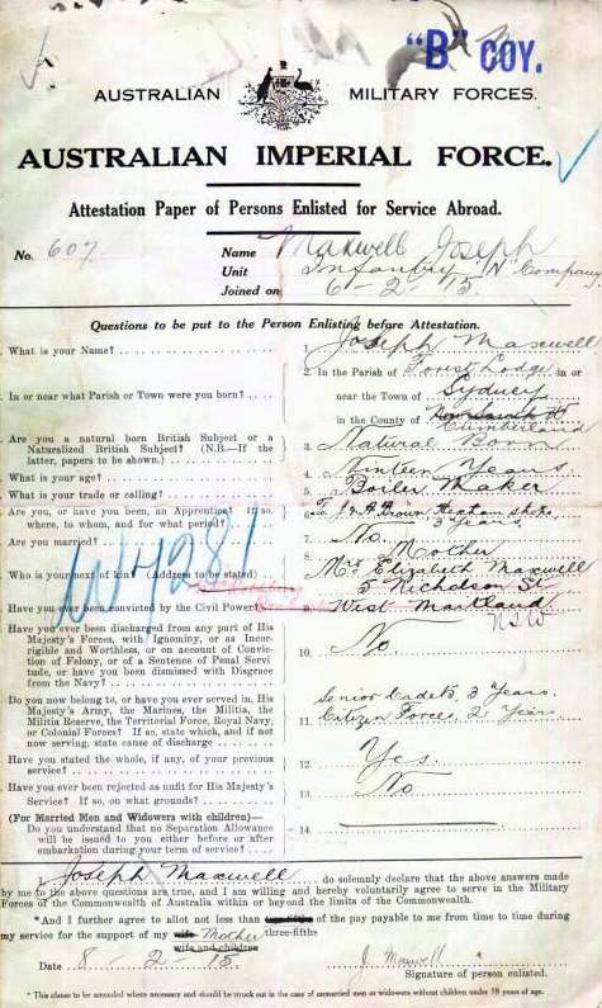 "B" COY.
AUSTRALIAN MILITARY FORCES.
AUSTRALIAN IMPERIAL FORCE.
Attestation Paper of Persons Enlisted for Service Abroad.
No. 607 Name Maxwell Joseph
Unit Infantry "N" Company
Joined on 6-2-15.
Questions to be put to the Person Enlisting before Attestation.
What is your Name? 1. Joseph Maxwell
In or near what Parish or Town were you born? 2. In the Parish of Forest Lodge in or
near the Town of Sydney
in the County of Cumberland
Are you a natural born British Subject or a
Naturalized British Subject? (N.B.—If the
latter, papers to be shown.) 3. Natural Born
What is your age? 4. Ninteen Years
What is your trade or calling? 5. Boiler Maker
Are you, or have you been, an Apprentice? If so,
where, to whom, and for what period? 6. To J & A Brown Hexham shops, 3 Years
Are you married? 7. No.
Who is your next of kin? (Address to be stated) 8. Mother
Mrs Elizabeth Maxwell
5 Nicholson St
West Maitland
NSW
W4281
Have you ever been convicted by the Civil Power? 9.
Have you ever been discharged from any part of His
Majesty's Forces, with Ignominy, or as Incor-
rigible and Worthless, or on account of Convic-
tion of Felony, or of a Sentence of Penal Servi
tude, or have you been dismissed with Disgrace
from the Navy? 10. No.
Do you now belong to, or have you ever served in, His
Majesty's Army, the Marines, the Militia, the
Militia Reserve, the Territorial Force, Royal Navy,
or Colonial Forces? If so, state which, and if not
now serving, state cause of discharge 11. Senior Cadets, 3 Years.
Citizen Forces, 2 Years
Have you stated the whole, if any, of your previous
service? 12. Yes.
Have you ever been rejected as unfit for His Majesty's
Service? If so, on what grounds? 13. No
(For Married Men and Widowers with children)—
Do you understand that no Separation Allowance
will be issued to you either before or after
embarkation during your term of service? 14.
I, Joseph Maxwell do solemnly declare that the above answers made
by me to the above questions are true, and I am willing and hereby voluntarily agree to serve in the Military
Forces of the Commonwealth of Australia within or beyond the limits of the Commonwealth.
*And I further agree to allot not less than two-fifths of the pay payable to me from time to time during
three-fifths
my service for the support of my wife Mother
wife and children
Date 8-2-15. J. Maxwell
Signature of person enlisted.
* This clause to be amended where necessary and should be struck out in the case of unmarried men or widowers without children under 18 years of age.